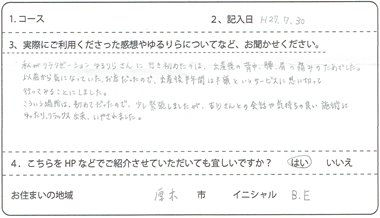 1. コース 2、記入日 H27.7.30
3、実際にご利用くださった感想やゆるりらについてなど、お聞かせください。
私がリラクゼーションゆるりらさんに行き初めたのは、出産後の背中、腰、肩の痛みからでした。
以前から気になっていたお店だったので、出産後半年間は半額というサービスに思い切って
行ってみることにしました。
こういう場所は、初めてだったので、少し緊張しましたが、さりさんとの会話や気持ちの良い施術に
ゆったり、リラックス出来、いやされました。
4、こちらを HP などでご紹介させていただいても宜しいですか？ はい いいえ
お住まいの地域 厚木 市 イニシャル B.E